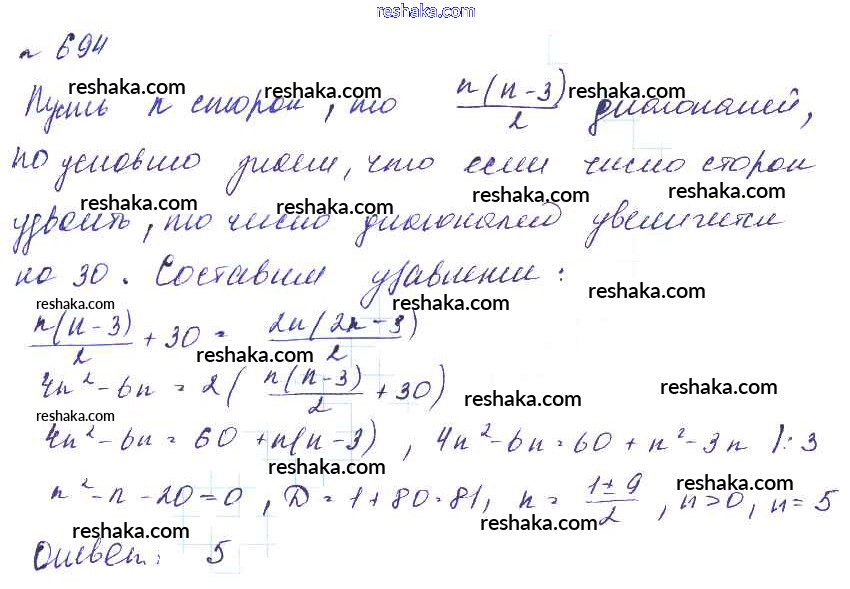 reshaka.com
n 694
reshaka.com reshaka.com reshaka.com
Пусть n сторон, то n(n-3)/2 диагоналей,
по условию знаем, что если число сторон
reshaka.com reshaka.com reshaka.com reshaka.com
удвоить, то число диагоналей увеличится
на 30. Составим уравнение:
reshaka.com reshaka.com reshaka.com
n(n-3)/2 + 30 = 2n(2n-3)/2
reshaka.com
4n²-6n = 2(n(n-3)/2 + 30)
reshaka.com reshaka.com reshaka.com
4n²-6n = 60 + n(n-3), 4n²-6n = 60 + n²-3n |:3
reshaka.com reshaka.com
n²-n-20=0, D=1+80=81, n = 1±9/2, n>0, n=5
reshaka.com reshaka.com
Ответ: 5